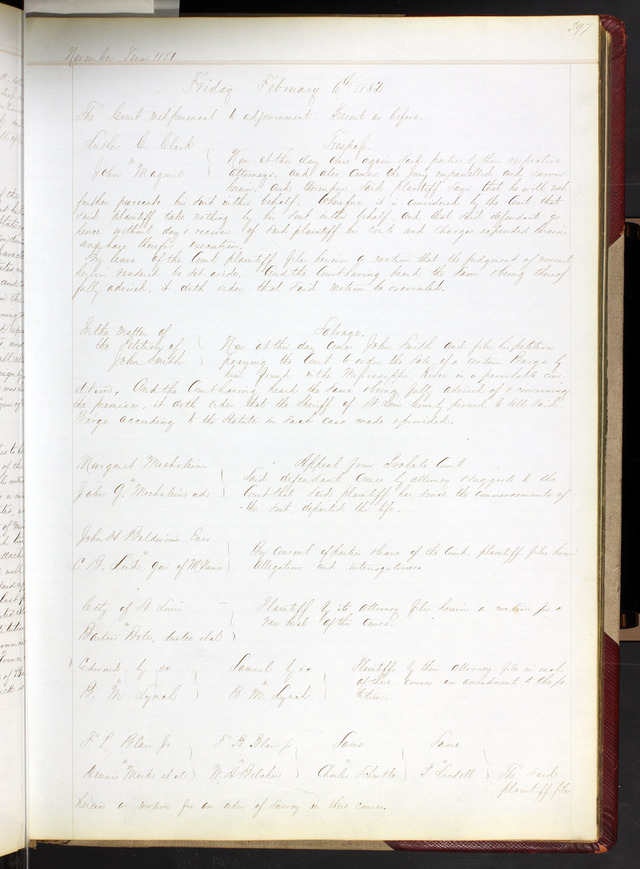 397
November Term 1851
Friday February 6th 1852
The Court met pursuant to adjournment. Present as before.
Luther C. Clark
"
John Maguire
Trespass.
Now at this day come again said parties by their respective
attorneys, and also comes the jury empannelled and sworn
herein, and thereupon said plaintiff says that he will not
further prosecute his suit in this behalf. Wherefore it is considered by the Court that
said plaintiff take nothing by his suit in this behalf, and that said defendant go
hence without day & recover of said plaintiff his costs and charges expended herein
and have therefor execution.
By leave of the Court plaintiff files herein a motion that the judgment of nonsuit
herein rendered be set aside. And the Court having heard the same & being thereof
fully advised, it doth order that said motion be overruled.
In the matter of
the Petition of
John Smith
Salvage.
Now at this day comes John Smith and files his petition
praying the Court to order the sale of a certain Barge by
him found in the Mississippi River in a perishable con
dition, And the Court having heard the same & being fully advised of & concerning
the premises, it doth order that the Sheriff of St Louis County proceed to sell said
Barge according to the Statute in such case made & provided.
Margaret
"
John G. adr
Appeal from Probate Court
Said defendant comes by attorney & suggests to the
Court that said plaintiff has since the commencement of
the suit departed this life.
John H Baldwin's Exrs
"
C. B. Gar of
By consent of parties & leave of the Court, plaintiff files herein
allegations and interrogatories.
City of St Louis
"
Barton et al
Plaintiff by its attorney files herein a motion for a
new trial of this cause.
Edward by &c
"
B. M. Lynch
Samuel by &c
"
B. M. Lynch
Plaintiffs by their attorney file in each
of these causes an amendment to the pe
tition.
F. P. Blair Jr
"
Dennis Marks et al
F. P. Blair Jr
"
W. H. Belcher
Same
"
Charles
Same
"
P. Lindell
The said
plaintiff files
herein a motion for an order of survey in these causes.